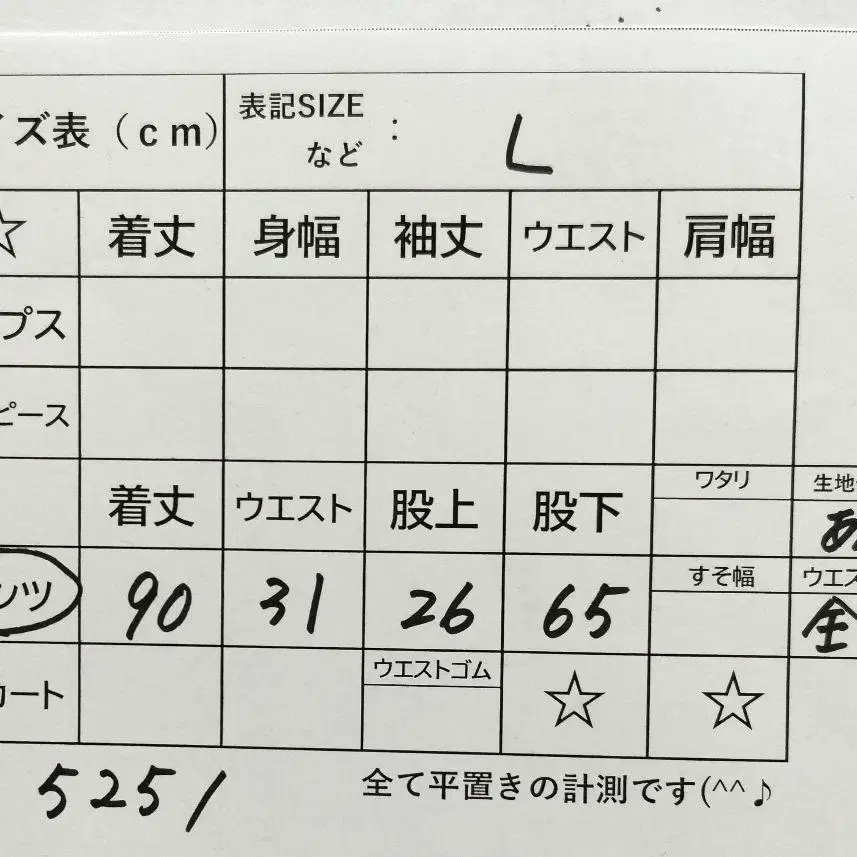 イズ表（ｃｍ） 表記SIZE
など : L
☆ 着丈 身幅 袖丈 ウエスト 肩幅
プス
ピース
着丈 ウエスト 股上 股下 ワタリ 生地
あ
ンツ 90 31 26 65 すそ幅 ウエス
全
カート ウエストゴム ☆ ☆
5251 全て平置きの計測です(^^♪